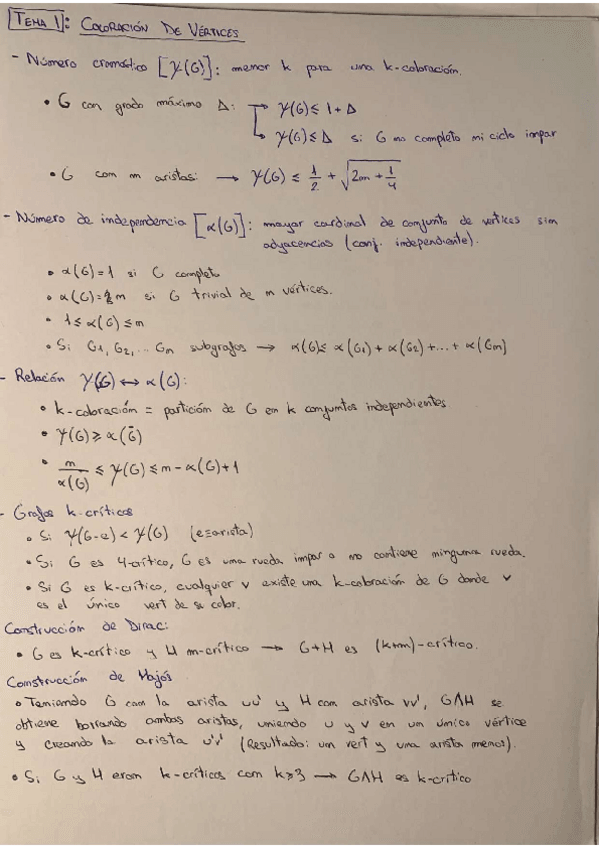 TEMA 1: COLORACIÓN DE VÉRTICES
- Número cromático [γ(G)]: menor k para una k-coloración.
• G con grado máximo Δ: → γ(G) ≤ 1 + Δ
→ γ(G) ≤ Δ si G no completo ni ciclo impar
• G con m aristas: → γ(G) ≤ 1/2 + √(2m + 1/4)
- Número de independencia [α(G)]: mayor cardinal de conjunto de vertices sin
adyacencias (conj. independiente).
• α(G) = 1 si G completo
• α(G) = n si G trivial de n vértices.
• 1 ≤ α(G) ≤ n
• Si G1, G2, ... Gn subgrafos → α(G) ≤ α(G1) + α(G2) + ... + α(Gn)
- Relación γ(G) ↔ α(G):
• k-coloración = partición de G en k conjuntos independientes
• γ(G) ≥ α(Ḡ)
• n/α(G) ≤ γ(G) ≤ n - α(G) + 1
- Grafos k-críticos
• Si γ(G-e) < γ(G) (e≡arista)
• Si G es 4-crítico, G es una rueda impar o no contiene ninguna rueda.
• Si G es k-crítico, cualquier v existe una k-coloración de G donde v
es el único vert de su color.
Construcción de Dirac:
• G es k-crítico y H m-crítico → G+H es (k+m)-crítico.
Construcción de Hajós
• Teniendo G con la arista uu' y H con arista vv', GΛH se
obtiene borrando ambas aristas, uniendo u y v en un único vértice
y creando la arista u'v' (Resultado: un vert y una arista menos).
• Si G y H eran k-críticos con k≥3 → GΛH es k-crítico